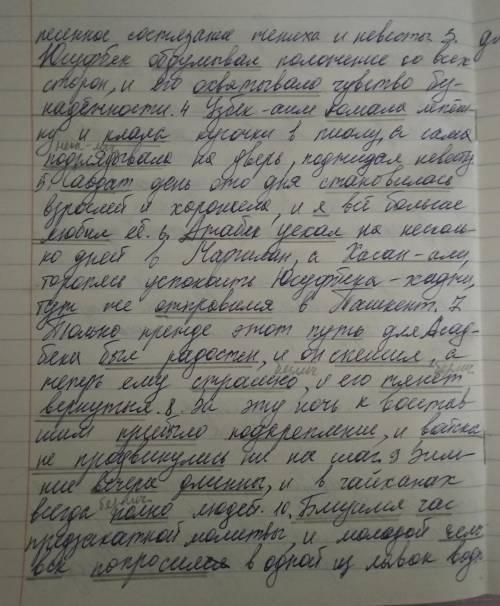 песенное состязание жениха и невесты. 3.
Юсуфбек обдумывал положение со всех
сторон, и его охватывало чувство бу-
надёжности. 4 Узбек-аим ломала лепёш-
ку и клала кусочки в пиалу, а сама
подглядывала на дверь, поджидая невесту
5. день ото дня становилась
взрослей и хорошела, и я всё больше
любил её. 6. Атабек уехал на несколь-
ко дней в Маргилан, а Хасан-али,
торопясь успокоить Юсуфбека-хаджи,
тут же отправился в Ташкент. 7
Только прежде этот путь для Асад-
бека был радостен, и он спешил, а
безлич. безлич.
теперь ему страшно, и его тянет
вернуться. 8. За эту ночь к восстав-
шим прибыло подкрепление, и войска
не продвинулись ни на шаг. 9 Зим-
ние вечера длинны, и в чайханах
безлич.
всегда полно людей. 10. Близился час
предзакатной молитвы, и молодой чело-
век попросился в одной из лавок